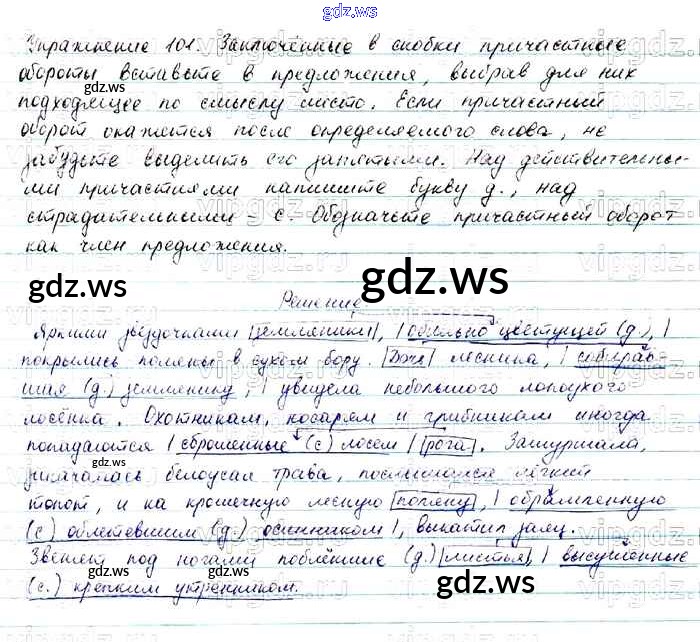 gdz.ws
Упражнение 101. Заключённые в скобки причастные
обороты вставьте в предложения, выбрав для них
подходящее по смыслу место. Если причастный
оборот окажется после определяемого слова, не
забудьте выделить его запятыми. Над действительны-
ми причастиями напишите букву д., над
страдательными - с. Обозначьте причастный оборот
как член предложения.
gdz.ws
gdz.ws
Решение
Яркими звёздочками земляники, | обильно цветущей (д.), |
покрылись поляны в сухом бору. Дочь лесника, | собирав-
шая (д.) землянику, | увидела небольшого лопоухого
лосёнка. Охотникам, косарям и грибникам иногда
попадаются | сброшенные (с) лосем | рога. Зашуршала,
gdz.ws
закачалась белоусая трава, послышался лёгкий
топот, и на крошечную лесную поляну, | обрамленную
(с) облетевшим (д.) осинником |, выкатил заяц.
gdz.ws
Звенят под ногами поблёкшие (д.) листья, | высушенные
(с.) крепким утренником.
gdz.ws
gdz.ws